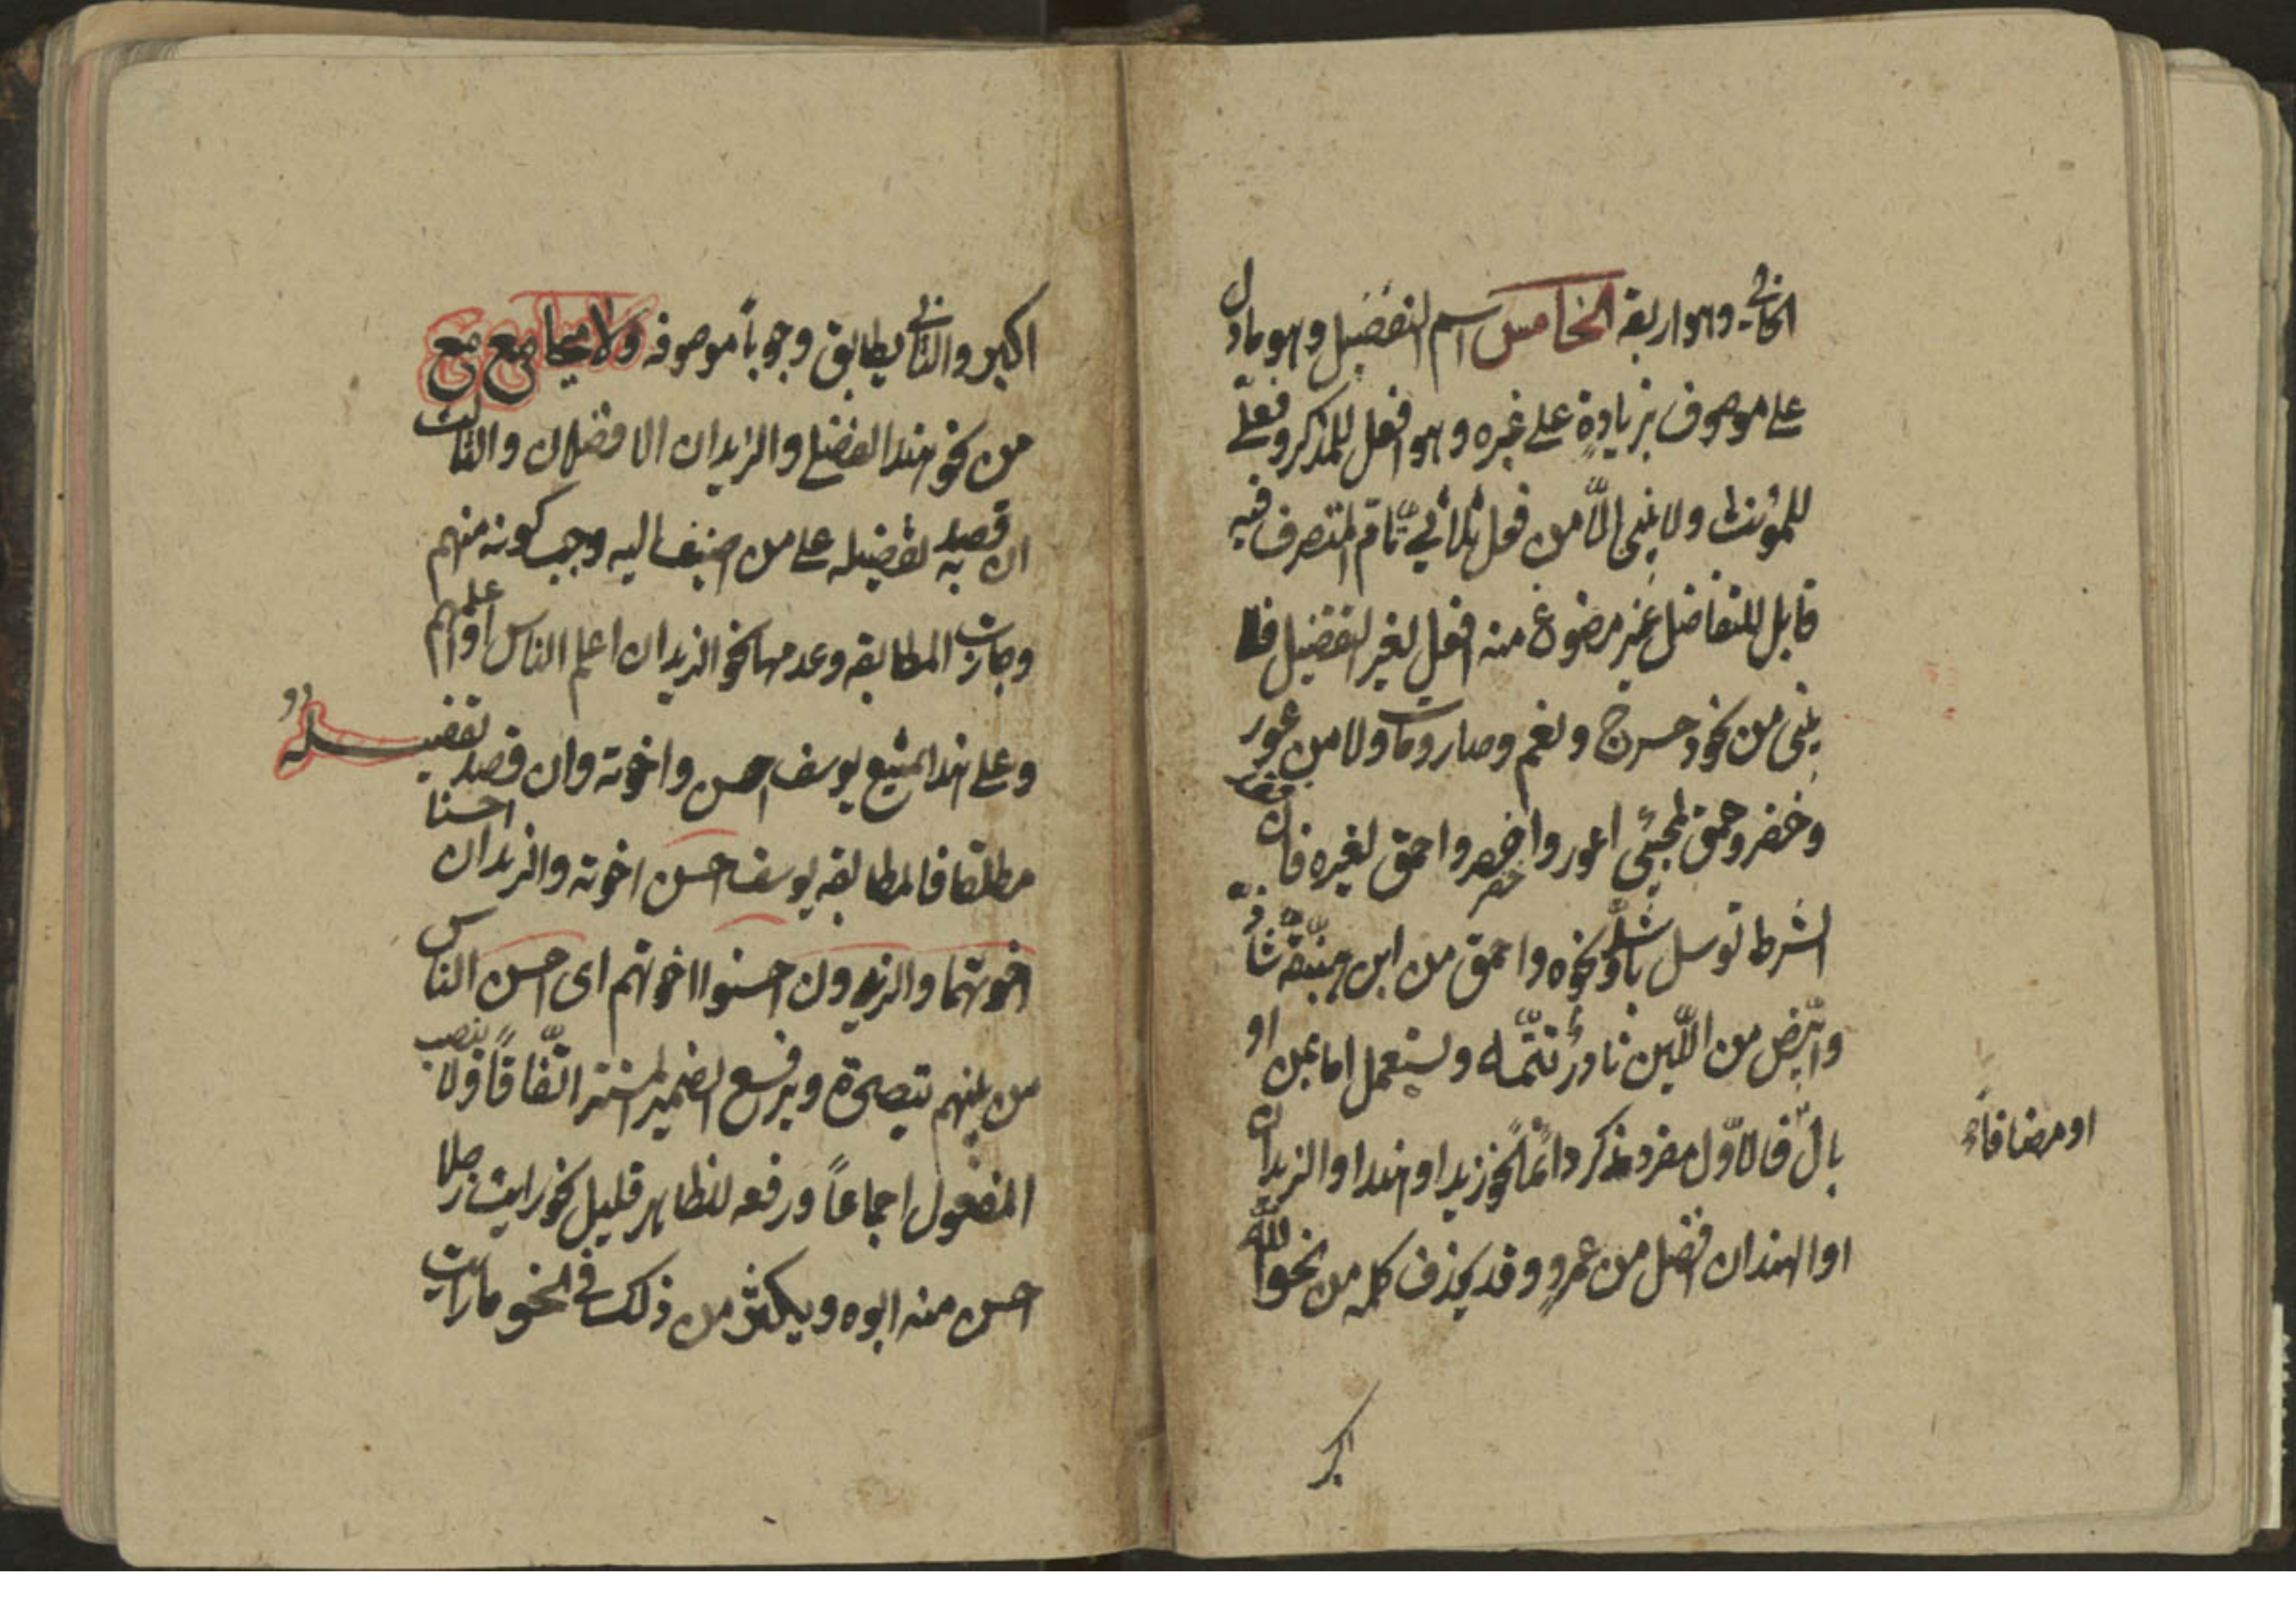 الخالي وهو اربعة الخامس اسم التفضيل وهو ما دل
على موصوف بزيادةٍ على غيره وهو افعل للمذكر وفعلى
للمؤنث ولا يبنى الّا من فعل ثلاثيّ تامّ المتصرف فيه
قابل للتفاضل غير مصوغ منه افعل لغير التفضيل فلا
يبنى من نحو دحرج و نعم وصار ومات ولا من عور
وخضر وحمق لمجيئ اعور واخضر واحمق لغيره فان فقد
خضر
الشرط توسل باشدّ ونحوه واحمق من ابن هبنّقة شاذّ
وابيض من اللّبن نادرٌ تتمّه ويستعمل اما بمن او
بال فالاوّل مفرد مذكر دائماً نحو زيد او هند او الزيدان
او مضافاً
او الهندان افضل من عمرٍو وقد يحذف كله من نحو الله
اكبر
اكبر والثاني يطابق وجوباً موصوفه ولا يجامع مع
من نحو هند الفضلى والزيدان الافضلان والثالث
ان قصد به تفضيله على من اضيف اليه وجب كونه منهم
وجازت المطابقه وعدمها نحو الزيدان اعلم الناس او اعلمهم
وعلى هذا يمتنع يوسف احسن واخوته وان قصد تفضيله
مطلقا فالمطابقه يوسف احسن اخوته والزيدان احسنا
اخوتهما والزيدون احسنوا اخوتهم اى احسن الناس
من بينهم تتصحرة ويرفع الضمير المستتر اتّفاقاً ولا ينصب
المفعول اجماعاً ورفعه للظاهر قليل نحو رايت رجلا
احسن منه ابوه ويكثر من ذلك في نحو ما رايت